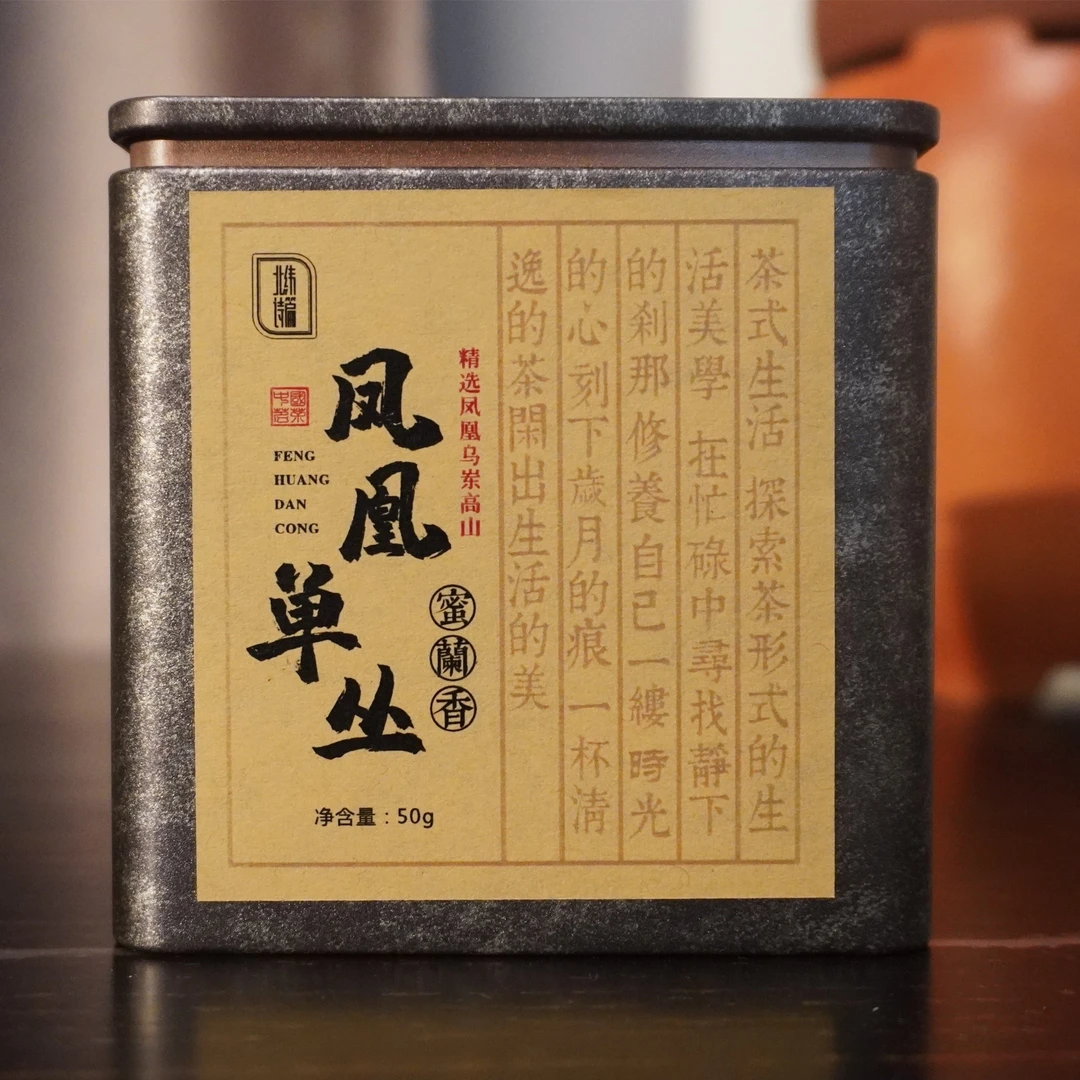 北纬
诗篇
中國
茗茶
FENG
HUANG
DAN
CONG
凤凰单丛
精选凤凰乌岽高山
蜜蘭香
净含量：50g
茶式生活 探索茶形式的生
活美學 在忙碌中尋找靜下
的剎那 修養自己一縷時光
的心 刻下歲月的痕 一杯清
逸的茶閑出生活的美